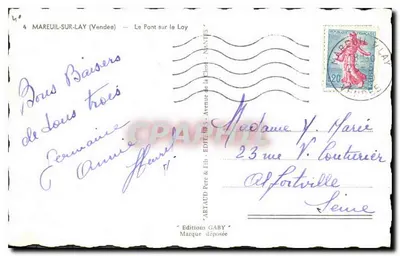 4 MAREUIL-SUR-LAY (Vendée) — Le Pont sur le Lay
Bons Baisers
de tous trois
Germaine
Annie
Henri
"ARTAUD Père & Fils - EDITEURS - Avenue de la Close - NANTES"
"Editions GABY"
Marque déposée
MAREUIL S. LAY
0,20
Madame Y. Marie
23 rue V. Couturier
Alfortville
Seine